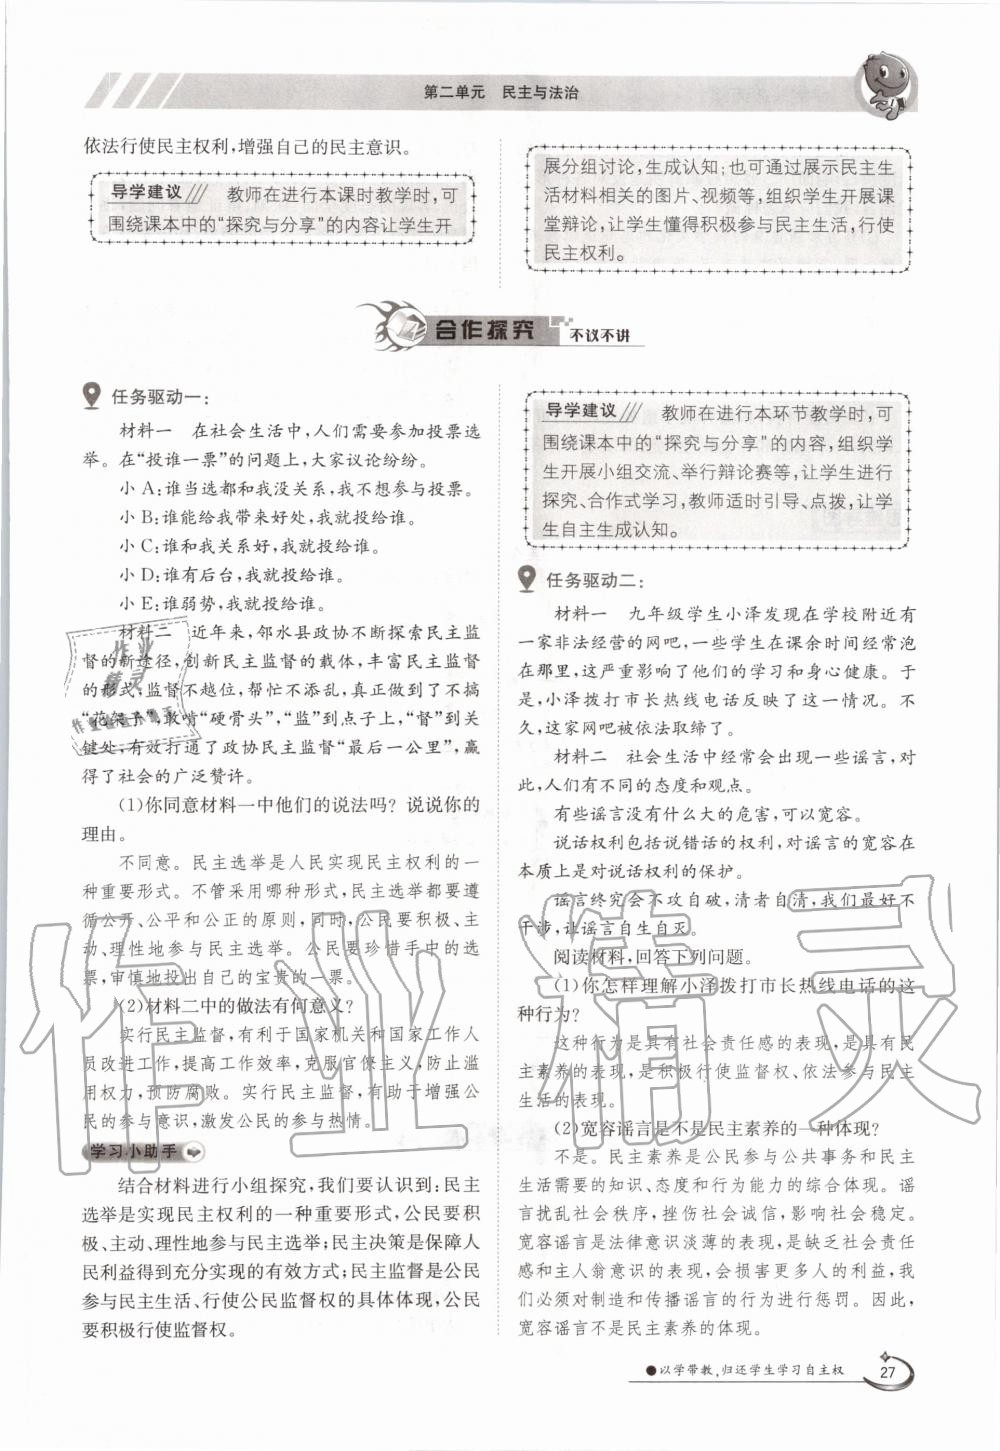 第二单元 民主与法治
依法行使民主权利,增强自己的民主意识。
导学建议 教师在进行本课时教学时,可
围绕课本中的“探究与分享”的内容让学生开
展分组讨论,生成认知;也可通过展示民主生
活材料相关的图片、视频等,组织学生开展课
堂辩论,让学生懂得积极参与民主生活,行使
民主权利。
合作探究 不议不讲
任务驱动一:
材料一 在社会生活中,人们需要参加投票选
举。在“投谁一票”的问题上,大家议论纷纷。
小 A:谁当选都和我没关系,我不想参与投票。
小 B:谁能给我带来好处,我就投给谁。
小 C:谁和我关系好,我就投给谁。
小 D:谁有后台,我就投给谁。
小 E:谁弱势,我就投给谁。
材料二 近年来,邻水县政协不断探索民主监
督的新途径,创新民主监督的载体,丰富民主监督
的形式,监督不越位,帮忙不添乱,真正做到了不搞
“花架子”,敢啃“硬骨头”,“监”到点子上,“督”到关
键处,有效打通了政协民主监督“最后一公里”,赢
得了社会的广泛赞许。
(1)你同意材料一中他们的说法吗?说说你的
理由。
不同意。民主选举是人民实现民主权利的一
种重要形式。不管采用哪种形式,民主选举都要遵
循公开、公平和公正的原则,同时,公民要积极、主
动、理性地参与民主选举。公民要珍惜手中的选
票,审慎地投出自己的宝贵的一票。
(2)材料二中的做法有何意义?
实行民主监督,有利于国家机关和国家工作人
员改进工作,提高工作效率,克服官僚主义,防止滥
用权力,预防腐败。实行民主监督,有助于增强公
民的参与意识,激发公民的参与热情。
学习小助手
结合材料进行小组探究,我们要认识到:民主
选举是实现民主权利的一种重要形式,公民要积
极、主动、理性地参与民主选举;民主决策是保障人
民利益得到充分实现的有效方式;民主监督是公民
参与民主生活、行使公民监督权的具体体现,公民
要积极行使监督权。
导学建议 教师在进行本环节教学时,可
围绕课本中的“探究与分享”的内容,组织学
生开展小组交流、举行辩论赛等,让学生进行
探究、合作式学习,教师适时引导、点拨,让学
生自主生成认知。
任务驱动二:
材料一 九年级学生小泽发现在学校附近有
一家非法经营的网吧,一些学生在课余时间经常泡
在那里,这严重影响了他们的学习和身心健康。于
是,小泽拨打市长热线电话反映了这一情况。不
久,这家网吧被依法取缔了。
材料二 社会生活中经常会出现一些谣言,对
此,人们有不同的态度和观点。
有些谣言没有什么大的危害,可以宽容。
说话权利包括说错话的权利,对谣言的宽容在
本质上是对说话权利的保护。
谣言终究会不攻自破,清者自清,我们最好不
干涉,让谣言自生自灭。
阅读材料,回答下列问题。
(1)你怎样理解小泽拨打市长热线电话的这
种行为?
这种行为是具有社会责任感的表现,是具有民
主素养的表现,是积极行使监督权、依法参与民主
生活的表现。
(2)宽容谣言是不是民主素养的一种体现?
不是。民主素养是公民参与公共事务和民主
生活需要的知识、态度和行为能力的综合体现。谣
言扰乱社会秩序,挫伤社会诚信,影响社会稳定。
宽容谣言是法律意识淡薄的表现,是缺乏社会责任
感和主人翁意识的表现,会损害更多人的利益,我
们必须对制造和传播谣言的行为进行惩罚。因此,
宽容谣言不是民主素养的体现。
●以学带教,归还学生学习自主权
27
作业精灵
作业
精灵